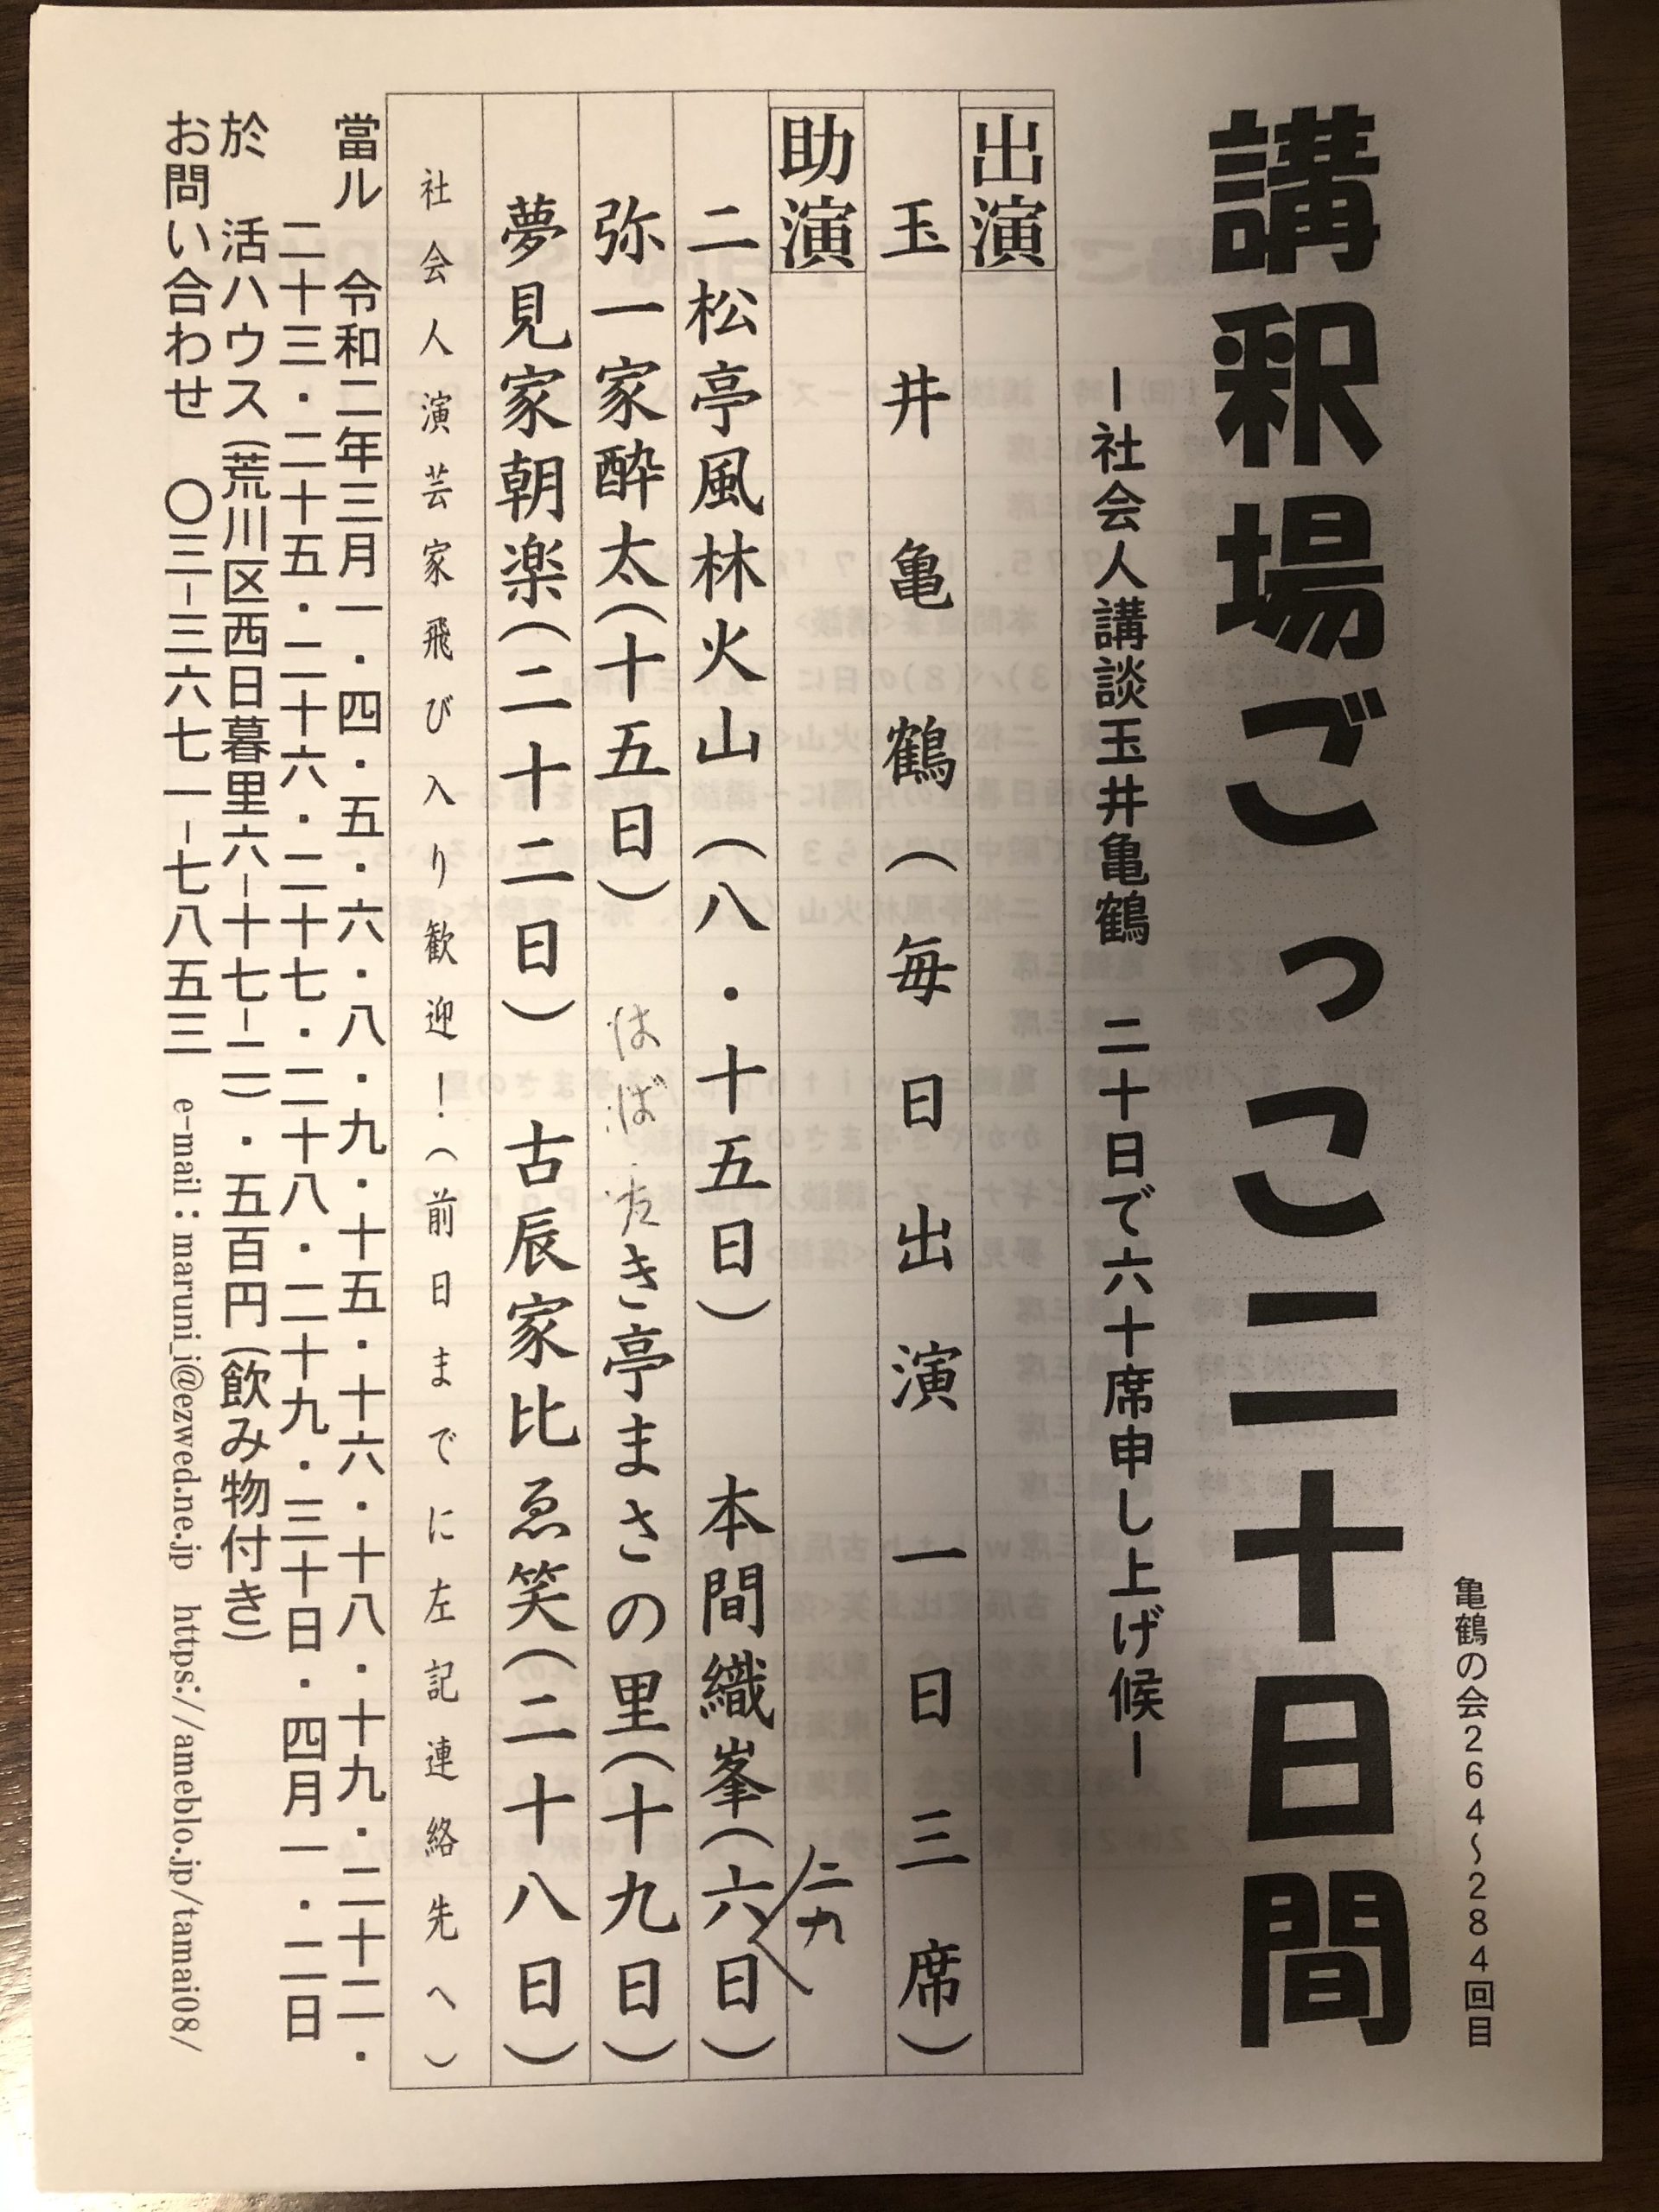 亀鶴の会264～284回目
講釈場ごっこ二十日間
ー社会人講談玉井亀鶴 二十日で六十席申し上げ候ー
出演
玉井亀鶴（毎日出演一日三席）
助演
二九
二松亭風林火山（八・十五日） 本間織峯（六日）
弥一家酔太（十五日） はばたき亭まさの里（十九日）
夢見家朝楽（二十二日） 古辰家比ゑ笑（二十八日）
社会人演芸家飛び入り歓迎！（前日までに左記連絡先へ）
當ル 令和二年三月一・四・五・六・八・九・十五・十六・十八・十九・二十二・
二十三・二十五・二十六・二十七・二十八・二十九・三十日・四月一・二日
於 活ハウス（荒川区西日暮里六－十七－二）・五百円（飲み物付き）
お問い合わせ 〇三－三六七一－七八五三 e-mail：maruni_i@ezwed.ne.jp https://ameblo.jp/tamai08/